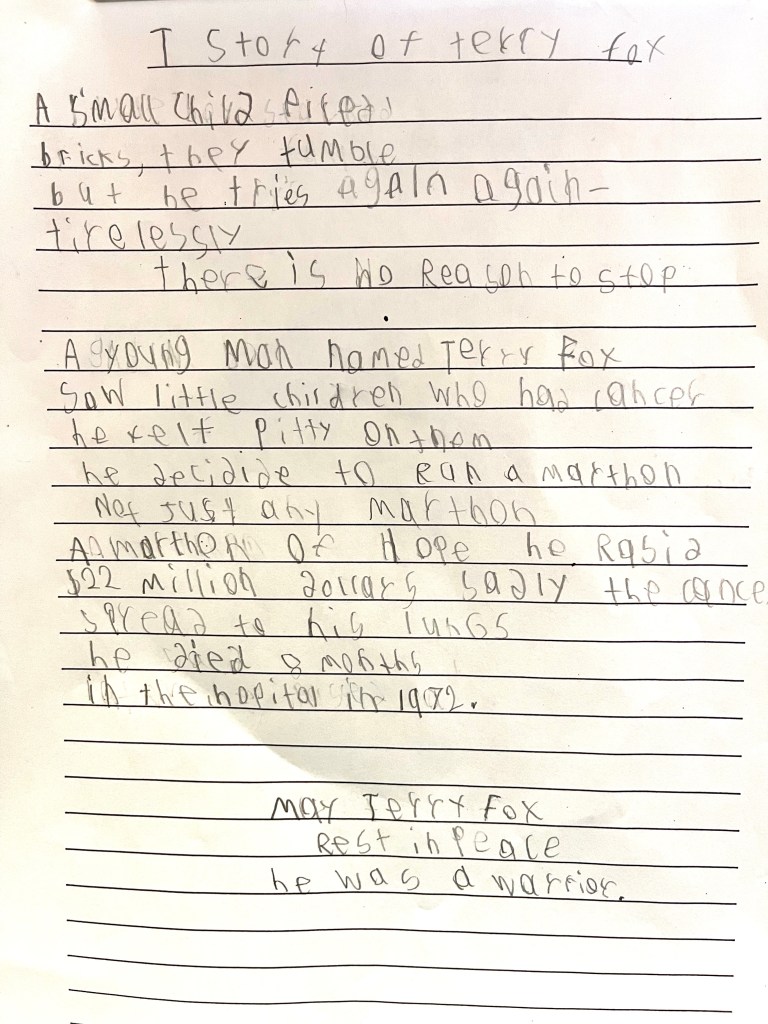 T Story of terry fox
A small child piled
bricks, they tumble
but he tries again again-
tirelessly
there is No Reason to stop
.
A young man named Terry Fox
Saw little children who had cancer
he felt pitty on them
he decidide to run a marthon
Not just any marthon
A marthon Of Hope he Rasid
$22 million dollars sadly the cance
spread to his lungs
he died 8 months
in the hopital in 1982.
may Terry Fox
Rest in Peace
he was a warrior.